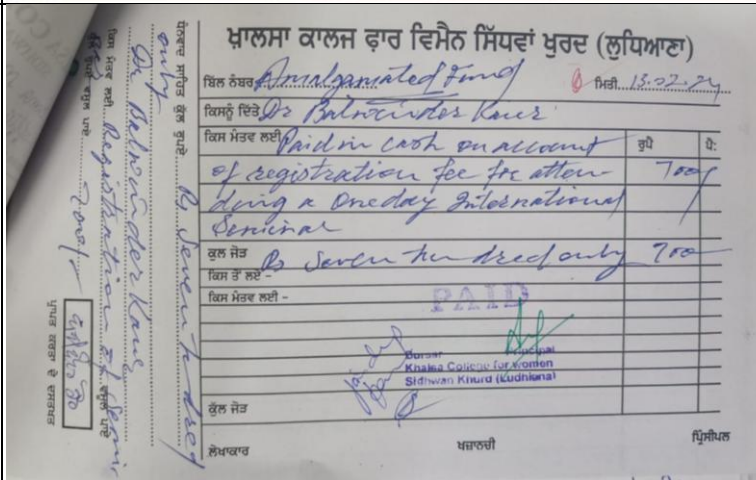 ਖ਼ਾਲਸਾ ਕਾਲਜ ਫ਼ਾਰ ਵਿਮੈਨ ਸਿੱਧਵਾਂ ਖੁਰਦ (ਲੁਧਿਆਣਾ)
ਬਿੱਲ ਨੰਬਰ Amalgamated Fund ਮਿਤੀ 13.02.24
ਕਿਸਨੂੰ ਦਿੱਤੇ Dr Balwinder Kaur
ਕਿਸ ਮੰਤਵ ਲਈ Paid in cash on account ਰੁਪੈ ਪੈ:
of registration fee for atten- 700/
ding a Oneday International
Seminar
ਕੁਲ ਜੋੜ Rs Seven hundred only 700
ਕਿਸ ਤੋਂ ਲਏ -
ਕਿਸ ਮੰਤਵ ਲਈ -
PAID
Bursar Principal
Khalsa College for women
Sidhwan Khurd (Ludhiana)
ਕੁੱਲ ਜੋੜ
ਲੇਖਾਕਾਰ ਖਜ਼ਾਨਚੀ ਪ੍ਰਿੰਸੀਪਲ
ਧੰਨਵਾਦ ਸਹਿਤ ਕੁੱਲ ਰੁਪਏ Rs Seven hdred
only ਵਸੂਲ ਪਾਏ
Dr Balwinder Kaur
ਕਿਸ ਮੰਤਵ ਲਈ Registration of Semi
ਰੁਪਏ ਵਸੂਲ ਪਾਏ 700/-
ਪ੍ਰਾਪਤ ਕਰਤਾ ਦੇ ਦਸਤਖਤ